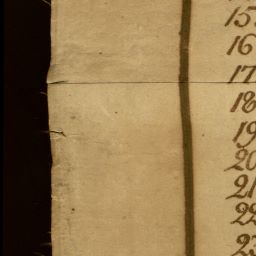 15.
16
17
18
19
20
21
22
23